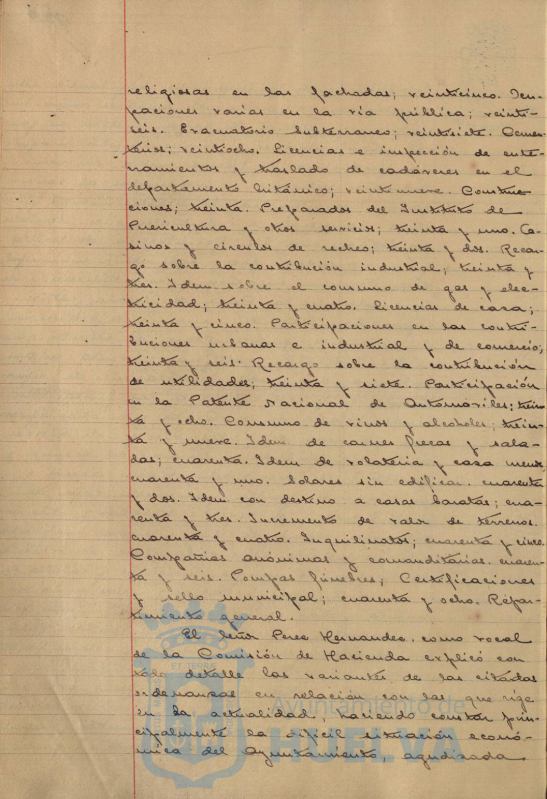 religiosas en las fachadas; veinticinco. Ocu-
paciones varias en la vía pública; veinti-
séis. Evacuatorio subterraneo; veintisiete. Cemen-
terios; veintiocho. Licencias e inspección de ente-
rramientos y traslado de cadáveres en el
departamento británico; veintinueve. Construc-
ciones; treinta. Preparados del Instituto de
Puericultura y otros servicios; treinta y uno. Ca-
sinos y circulos de recreo; treinta y dos. Recar-
go sobre la contribución industrial; treinta y
tres. Idem sobre el consumo de gas y elec-
tricidad; treinta y cuatro. Licencias de caza;
treinta y cinco. Participaciones en las contri-
buciones urbanas e industrial y de comercio;
treinta y seis. Recargo sobre la contribución
de utilidades; treinta y siete. Participación
en la Patente Nacional de Automóviles; trein-
ta y ocho. Consumo de vinos y alcoholes; trein-
ta y nueve. Idem de carnes frescas y sala-
das; cuarenta. Idem de volatería y caza menor,
cuarenta y uno. Solares sin edificar. cuarenta
y dos. Idem con destino a casas baratas; cua-
renta y tres. Incremento de valor de terrenos.
cuarenta y cuatro. Inquilinatos; cuarenta y cinco.
Compañías anónimas y comanditarias. cuaren-
ta y seis. Pompas fúnebres; Certificaciones
y sello municipal; cuarenta y ocho. Repar-
timiento general.
El Señor Perez Hernandez, como vocal
de la Comisión de Hacienda explicó con
todo detalle las variantes de las citadas
ordenanzas en relación con las que rige
en la actualidad, haciendo constar prin-
cipalmente la dificil situación econó-
mica del Ayuntamiento, agudizada
Ayuntamiento de
HUELVA